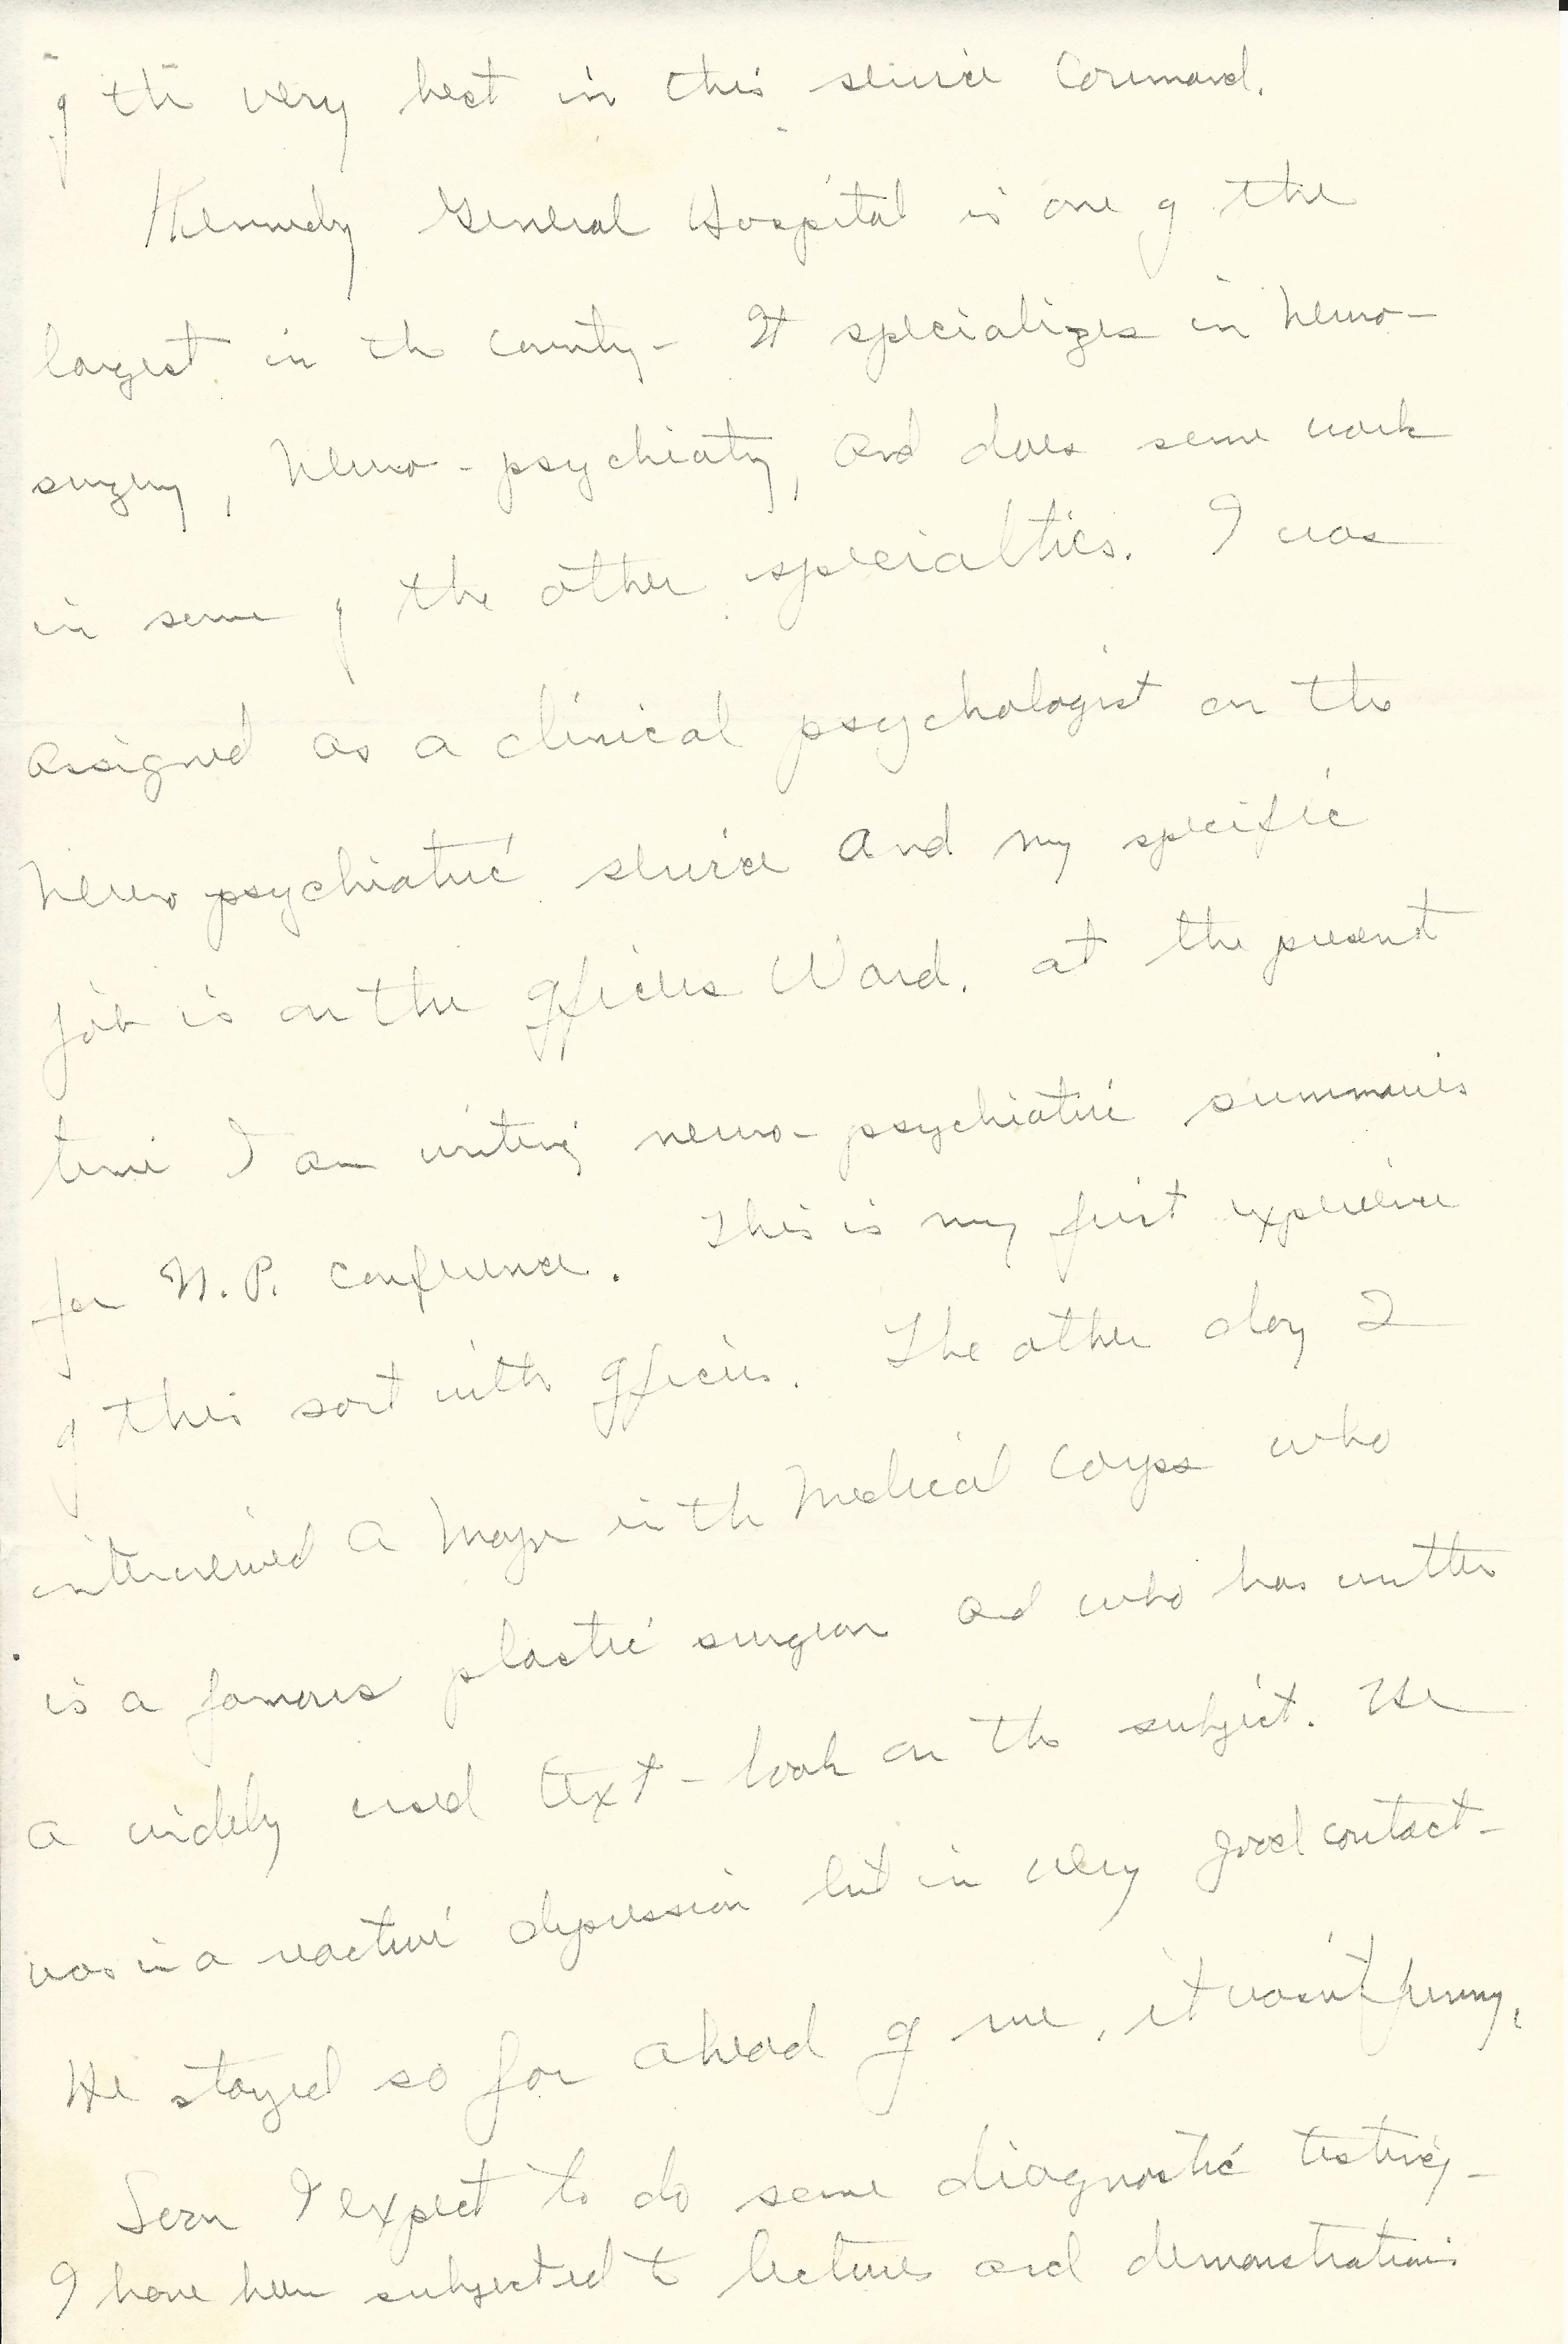 of the very best in this service Command.
Kennedy General Hospital is one of the
largest in the country - It specializes in Neuro-
surgery, Neuro-psychiatry, and does some work
in some of the other specialties. I was
assigned as a clinical psychologist on the
Neuropsychiatric service and my specific
job is on the Officers Ward. At the present
time I am writing neuro-psychiatric summaries
for N.P. conference. This is my first experience
of this sort with officers. The other day I
interviewed a Major in the Medical Corps who
is a famous plastic surgeon and who has written
a widely used text-book on the subject. He
was in a reactive depression but in very good contact -
He stayed so far ahead of me, it wasn't funny.
Soon I expect to do some diagnostic testing -
I have been subjected to lectures and demonstrations